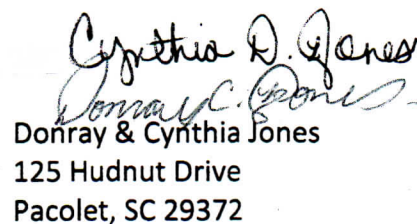 Cynthia D. Jones
Donray C. Jones
Donray & Cynthia Jones
125 Hudnut Drive
Pacolet, SC 29372